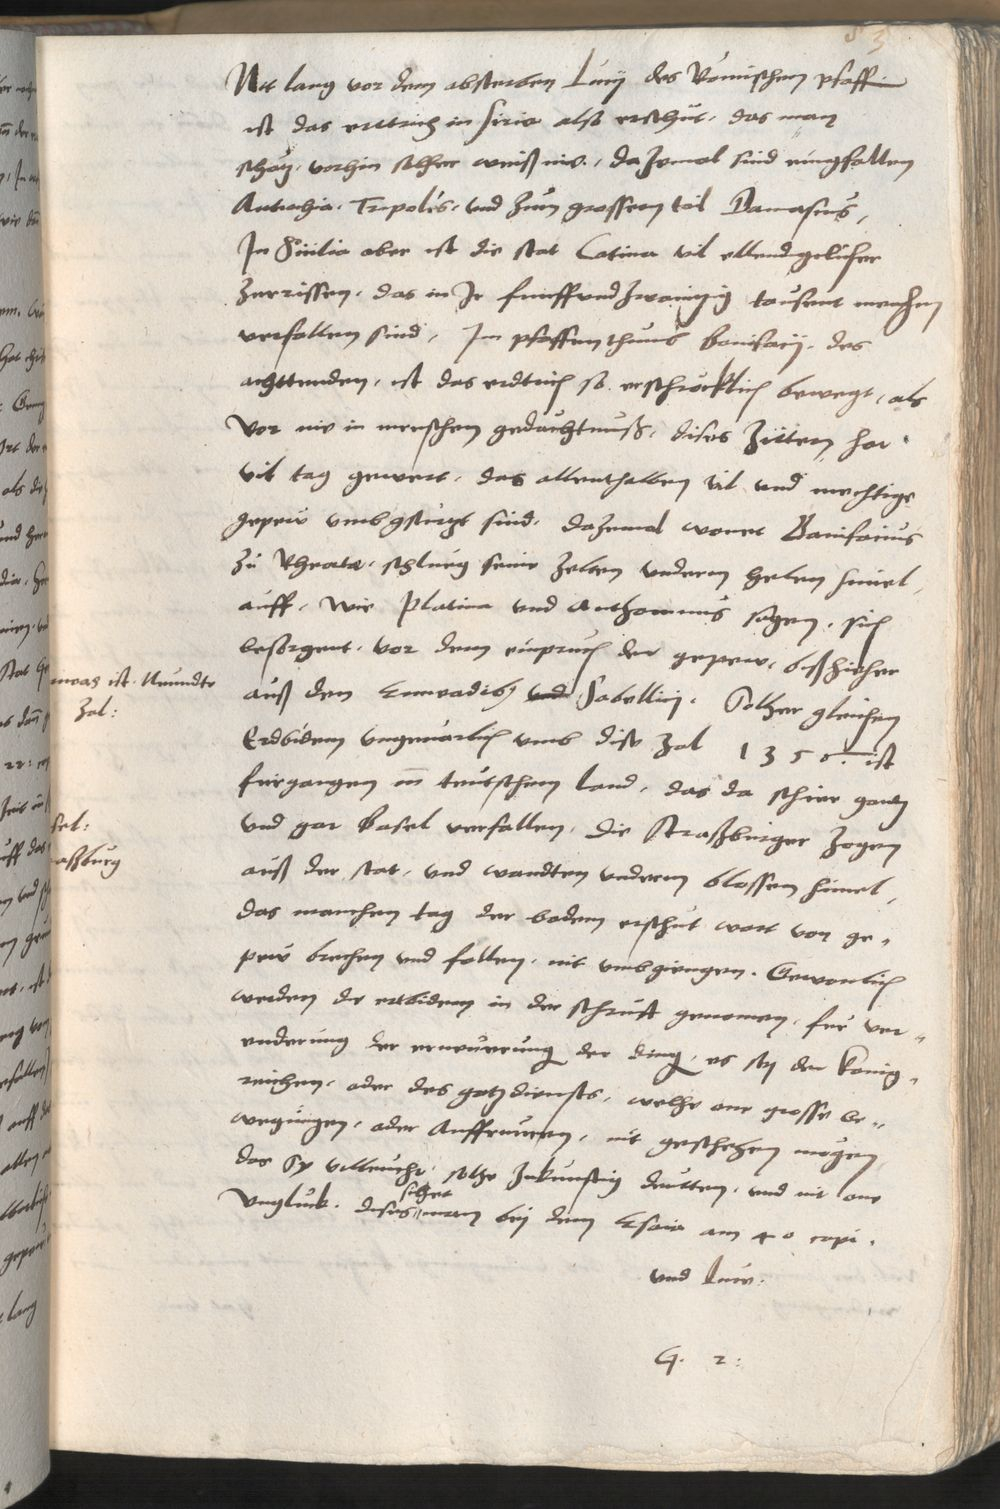 53
Nit lang vor dem absterben Lucij des Römischen pfaffen
ist das erttrich in Siria also erschüt, das man
schatz, vorhin solher weiß nie, dazemal sind eingfallen
Antiochia, Tripolis, und zum grossern tail Damascus,
In Sicilia aber ist die stat Catina vil ellendigelicher
Zerrissen, das in Ir funffundzwaintzig tausent menschen
verfallen sind, Im pfaffenthumb Bonifacij, des
achttenden, ist das erdtrich so erschröcklich bewegt, als
vor nie in menschen gedächtnuß, dises Zittern hat
vil tag gewert, das allenthalben vil und mechtige
gepew umbgsturtzt sind, dazemal wonet Bonifacius
zu Rheate, schlueg seine Zelten underm helen himel,
auff, wie Platina und Anthoninus sagen, sich
besorgent, vor dem einpruch der gepew, bißhieher
auß den Enneadibus und Sabellici. Solher gleichen
Erdbidem ungevarlich umb dise zal 1350. ist
fürgangen in teutschem land, das da schier gantz
und gar Basel verfallen, die Straßburger zogen
auß der stat, und wandten underm blossen himel,
das manchen tag der bodem erschüt wart von ge„
pew brechen und fallen, nit umbgiengen. Gewonlich
werden die erdbidem in der schrift genomen, für ver„
enderung der ernewerung der ding, es sey der König„
reichen, oder des gotzdiensts, welhe one grosse be„
wegungen, oder Auffruren, nit geschehen mögen,
das sy villeucht, solhe Zukunftig deutten, und nit one
Ungluck. dises sihet man bey dem Esaia am 40 capi.
und Luce.
G. 2:
was ist Neundte
Zal:
sel:
aßburg